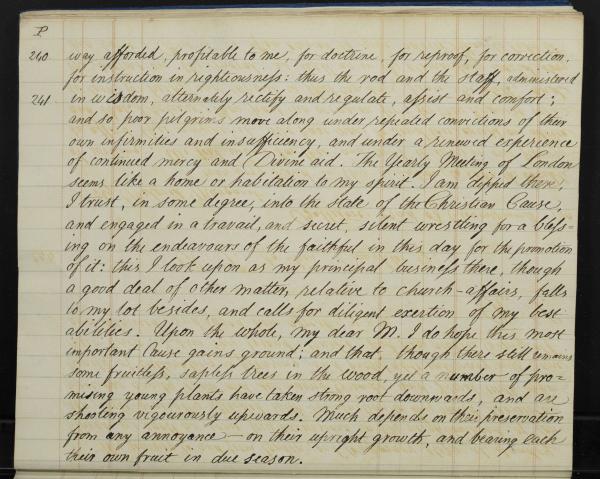 P
240 way afforded, profitable to me, for doctrine, for reproof, for correction,
for instruction in righteousness: thus the rod and the staff, administered
241 in wisdom, alternately rectify and regulate, assist and comfort;
and so poor pilgrims move along under repeated convictions of their
own infirmities and insufficiency, and under a renewed experience
of continued mercy and Divine aid. The Yearly Meeting of London
seems like a home or habitation to my spirit. I am dipped there,
I trust, in some degree, into the state of the Christian Cause,
and engaged in a travail, and secret, silent wrestling for a bless=
ing on the endeavours of the faithful in this day for the promotion
of it: this I look upon as my principal business there, though
a good deal of other matter, relative to church-affairs, falls
to my lot besides, and calls for diligent exertion of my best
abilities. Upon the whole, my dear M. I do hope this most
important Cause gains ground; and that, though there still remains
some fruitless, sapless trees in the wood, yet a number of pro=
mising young plants have taken strong root downwards, and are
shooting vigourously upwards. Much depends on their preservation
from any annoyance—on their upright growth, and bearing each
their own fruit in due season.